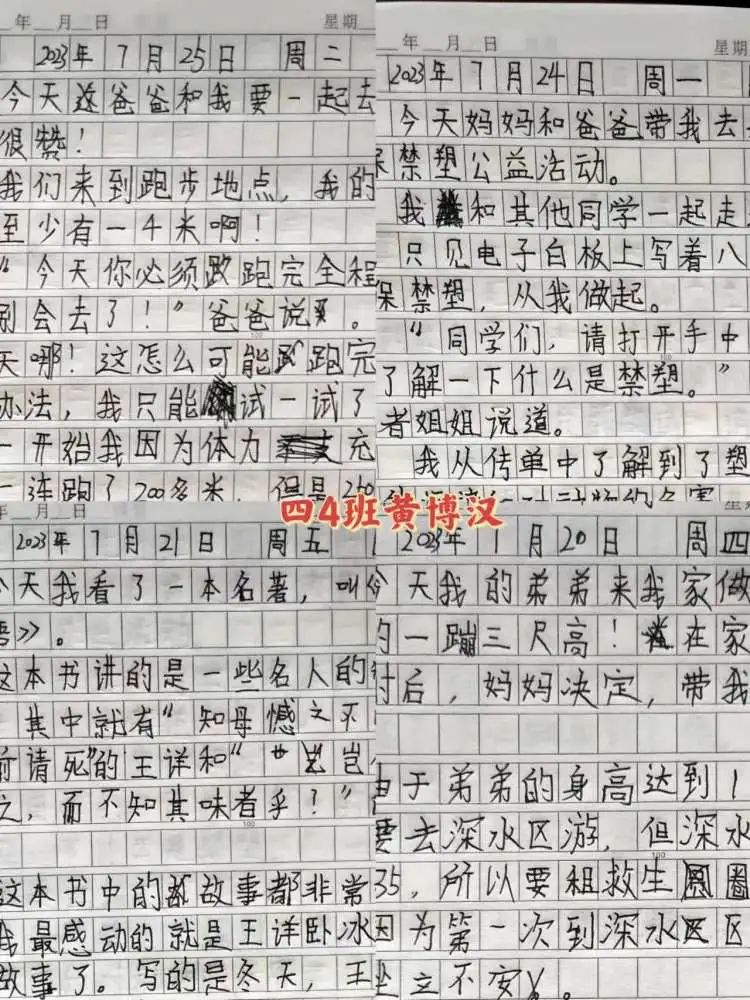 年 月 日 星期
2023年 7月 25日 周二
今天爸爸和我要一起去
很赞！
我们来到跑步地点，我的
至少有一4米啊！
“今天你必须跑完全程
别会去了！”爸爸说。
天哪！这怎么可能跑完
办法，我只能试一试了
一开始我因为体力充
一连跑了200多米，但是
年 月 日 星期
2023年 7月 24日 周一
今天妈妈和爸爸带我去
保禁塑公益活动。
我和其他同学一起走
只见电子白板上写着八
保禁塑，从我做起。
“同学们，请打开手中
了解一下什么是禁塑。”
者姐姐说道。
我从传单中了解到了塑
四4班黄博汉
年 月 日
2023年 7月 21日 周五
今天我看了一本名著，叫
》。
这本书讲的是一些名人的
其中就有“知母憾之不
前请死”的王详和“岂
之，而不知其味者乎？”
100
这本书中的故事都非常
我最感动的就是王详卧冰
故事了。写的是冬天，王
年 月 日 星
2023年 7月 20日 周四
今天我的弟弟来我家做
的一蹦三尺高！在家
时后，妈妈决定，带我
由于弟弟的身高达到1
要去深水区游，但深水
35，所以要租救生圈
因为第一次到深水区
坐立不安。